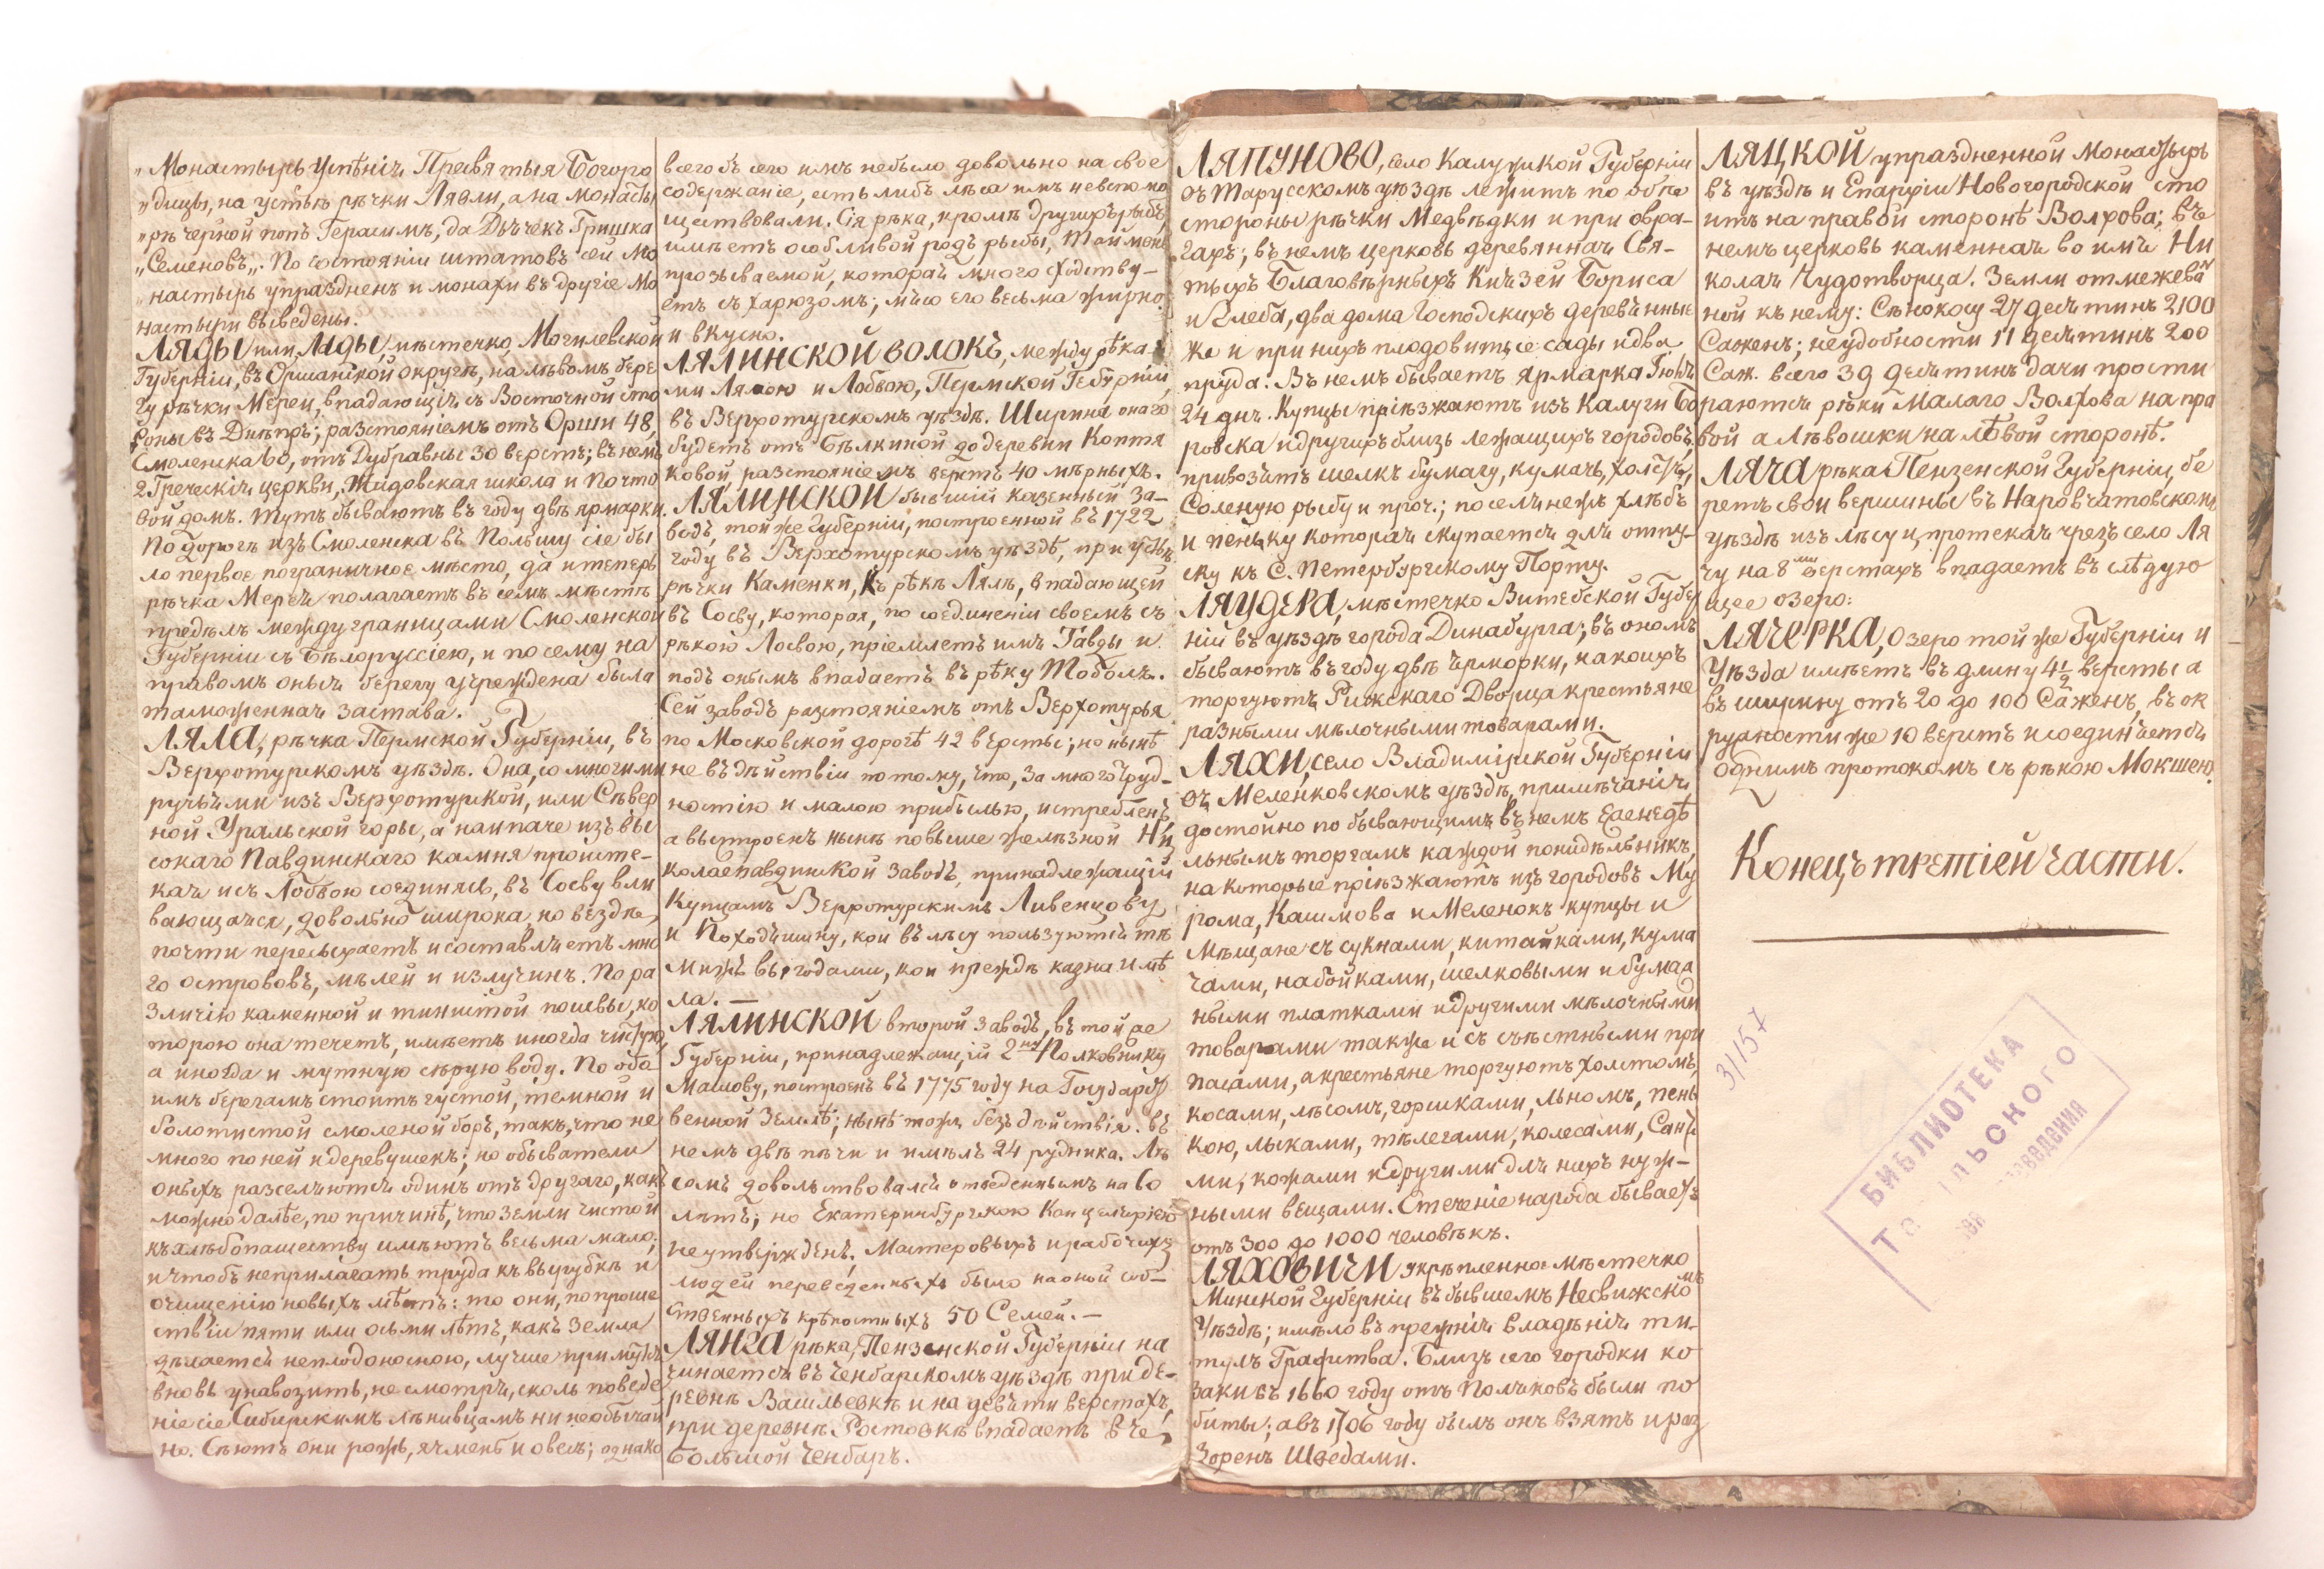 „Монастырь Успѣнія Пресвятыя Богоро
„дицы, на устьѣ рѣчки Лявли, а на Монасты
„рѣ черной попъ Герасимъ, да Дьячекъ Гришка
„Семеновъ„. По состояніи штатовъ сей Мо
настырь упраздненъ и монахи въ другіе Мо
настыри выведены.
ЛЯДЫ или ЛІДЫ, мѣстечко Могилевской
Губерніи, въ Оршанской округѣ, на лѣвомъ бере
гу рѣчки Мереи, впадающія съ Восточной сто
роны въ Днѣпръ; разстояніемъ отъ Орши 48,
Смоленска 60, отъ Дубравны 30 верстъ; въ немъ
2 Греческія церкви, Жидовская школа и Почто
вой домъ. Тутъ бываютъ въ году двѣ ярмарки.
По дорогѣ изъ Смоленска въ Польшу сіе бы
ло первое пограничное мѣсто, да и теперь
рѣчка Мерея полагаетъ въ семъ мѣстѣ
предѣлъ между границами Смоленской
Губерніи съ Бѣлоруссіею, и по сему на
правомъ оныя берегу учреждена была
таможенная застава.
ЛЯЛА, рѣчка Пермской Губерніи, въ
Верхотурскомъ уѣздѣ. Она, со многими
ручьями изъ Верхотурской, или Сѣвер
ной Уральской горы, а наипаче изъ вы
сокаго Павдинскаго камня происте-
кая и съ Лобвою соединясь, въ Сосву вли
вающаяся, довольно широка, но вездѣ
почти пересыхаетъ и составляетъ мно
го острововъ, мѣлей и излучинъ. По ра
зличію каменной и тинистой почвы, ко
торою она течетъ, имѣетъ иногда чистую,
а иногда и мутную сѣрую воду. По обѣ
имъ берегамъ стоитъ густой, темной и
болотистой смоленой боръ, такъ, что не
много по ней и деревушекъ; но обыватели
оныхъ разселяются одинъ отъ другаго, какъ
можно далѣе, по причинѣ, что земли чистой
къ хлѣбопашеству имѣютъ весьма мало;
и чтобъ неприлагать труда къ вырубкѣ и
очищенію новыхъ мѣстъ: то они, по проше
ствіи пяти или осьми лѣтъ, какъ земля
дѣлается неплодоносною, лучше примутся
вновь унавозить, не смотря, сколь поведе
ніе сіе Сибирскимъ лѣнивцамъ ни необычай
но. Сѣютъ они рожь, ячмень и овесъ; однако
всего бъ сего имъ небыло довольно на свое
содержаніе, есть либъ лѣса имъ невспомо
ществовали. Сія рѣка, кромѣ другихъ рыбъ,
имѣетъ особливой родъ рыбы, Тайменъ
прозываемой, которая много сходству-
етъ съ харюзомъ; мясо его весьма жирно
и вкусно.
ЛЯЛИНСКОЙ ВОЛОКЪ, между рѣка-
ми Лялою и Лобвою, Пермской Гебурніи,
въ Верхотурскомъ уѣздѣ. Ширина онаго
будетъ отъ Бѣлкиной до деревни Коптя
ковой, разстояніемъ верстъ 40 мѣрныхъ.
ЛЯЛИНСКОЙ бывшій казенный за-
водъ, той же Губерніи, построенной въ 1722
году въ Верхотурскомъ уѣздѣ, при устьѣ
рѣчки Каменки, къ рѣкѣ Лялѣ, впадающей
въ Сосву, которая, по соединеніи своемъ съ
рѣкою Лосвою, пріемлетъ имя Тавды и
подъ онымъ впадаетъ въ рѣку Тоболъ.
Сей заводъ разстояніемъ отъ Верхотурья
по Московской дорогѣ 42 версты; но нынѣ
не въ дѣйствіи потому, что, за многотруд-
ностію и малою прибылью, истребленъ,
а выстроенъ нынѣ повыше желѣзной Ни
колаепавдинской заводъ, принадлежащій
Купцамъ Верхотурскимъ Ливенцову
и Походяшину, кои въ лѣсу пользуются тѣ
мижъ выгодами, кои преждѣ казна имѣ
ла. —
ЛЯЛИНСКОЙ второй заводъ, въ той же
Губерніи, принадлежащій 2ⁿᵈ Полковнику
Маслову, построенъ въ 1775 году на Государст
венной Землѣ; нынѣ тожъ безъ дѣйствія. въ
немъ двѣ печи и имѣлъ 24 рудника. Лѣ
сомъ довольствовался отведеннымъ на 60
лѣтъ; но Екатеринбургскою Канцеляріею
неутвержденъ. Мастеровыхъ и рабочихъ
людей переведенныхъ было на оной соб-
ственныхъ крѣпостныхъ 50 Семей. —
ЛЯНГА рѣка, Пензенской Губерніи на
чинается въ Ченбарскомъ уѣздѣ при де-
ревнѣ Васильевкѣ и на девяти верстахъ,
при деревнѣ Ростовкѣ впадаетъ въ
Большой Ченбаръ.
ЛЯПУНОВО, село Калужской Губерніи
въ Тарусскомъ уѣздѣ лежитъ по обѣ
стороны рѣчки Медвѣдки и при овра-
гахъ; въ немъ церковь деревянная Свя-
тыхъ Благовѣрныхъ Князей Бориса
и Глеба, два дома Господскихъ деревянные
же и при нихъ плодовитые сады и два
пруда. Въ немъ бываетъ ярмарка Іюля
24 дня. Купцы пріѣзжаютъ изъ Калуги Бо
ровска и другихъ близь лежащихъ городовъ,
привозятъ шелкъ бумагу, кумачь, холстъ,
Соленую рыбу и проч.; поселянежъ хлѣбъ
и пеньку которая скупается для отпу-
ску къ С. Петербургскому Порту.
ЛЯУДЕРА, мѣстечко Витебской Губер
ніи въ уѣздѣ города Динабурга; въ ономъ
бываютъ въ году двѣ ярморки, на коихъ
торгуютъ Рижскаго Дворца крестьяне
разными мѣлочными товарами.
ЛЯХИ, село Владимірской Губерніи
въ Меленковскомъ уѣздѣ, примѣчанія
достойно по бывающимъ въ немъ Еженедѣ
льнымъ торгамъ каждой понидѣльникъ,
на которые пріѣзжаютъ изъ городовъ Му
рома, Касимова и Меленокъ купцы и
Мѣщане съ сукнами, китайками, кума
чами, набойками, шелковыми и бумаж
ными платками и другими мѣлочными
товарами также и съ съѣстными при
пасами, а крестьяне торгуютъ холстомъ,
косами, лѣсомъ, горшками, льномъ, пень
кою, лыками, телегами, колесами, Саня
ми, кожами и другими для нихъ нуж-
ными вещами. Стеченіе народа бываетъ
отъ 300 до 1000 человѣкъ.
ЛЯХОВИЧИ укрѣпленное мѣстечко
Минской Губерніи въ бывшемъ Несвижскомъ
Уѣздѣ; имѣло въ прежнія владѣнія ти-
тулъ Графства. Близь сего городки ко
заки въ 1660 году отъ Поляковъ были по
биты; а въ 1706 году былъ онъ взятъ и раз
зоренъ Шведами.
ЛЯЦКОЙ упраздненной Монастырь
въ уѣздѣ и Епархіи Новогородской сто
итъ на правой сторонѣ Волхова; въ
немъ церковь каменная во имя Ни
колая Чудотворца. Земли отмежеван
ной къ нему: Сѣнокосу 27 десятинъ 2100
Саженъ; неудобности 11 десятинъ 200
Саж. всего 39 десятинъ дачи прости
раются рѣки Малаго Волхова на пра
вой а Лѣвошки на лѣвой сторонѣ.
ЛЯЧА рѣка Пензенской Губерніи, бе
ретъ свои вершины въ Наровчатовскомъ
уѣздѣ изъ лѣсу и, протекая чрезъ село Ля
чу на 8ми верстахъ впадаетъ въ слѣдую
щее озеро:
ЛЯЧЕРКА, Озеро той же Губерніи и
Уѣзда имѣетъ въ длину 4½ версты а
въ ширину отъ 20 до 100 Саженъ, въ ок
ружности же 10 верстъ и соединяется
однимъ протокомъ съ рѣкою Мокшею.
Конецъ третіей части.
31157
БИБЛИОТЕКА
льского
ведения